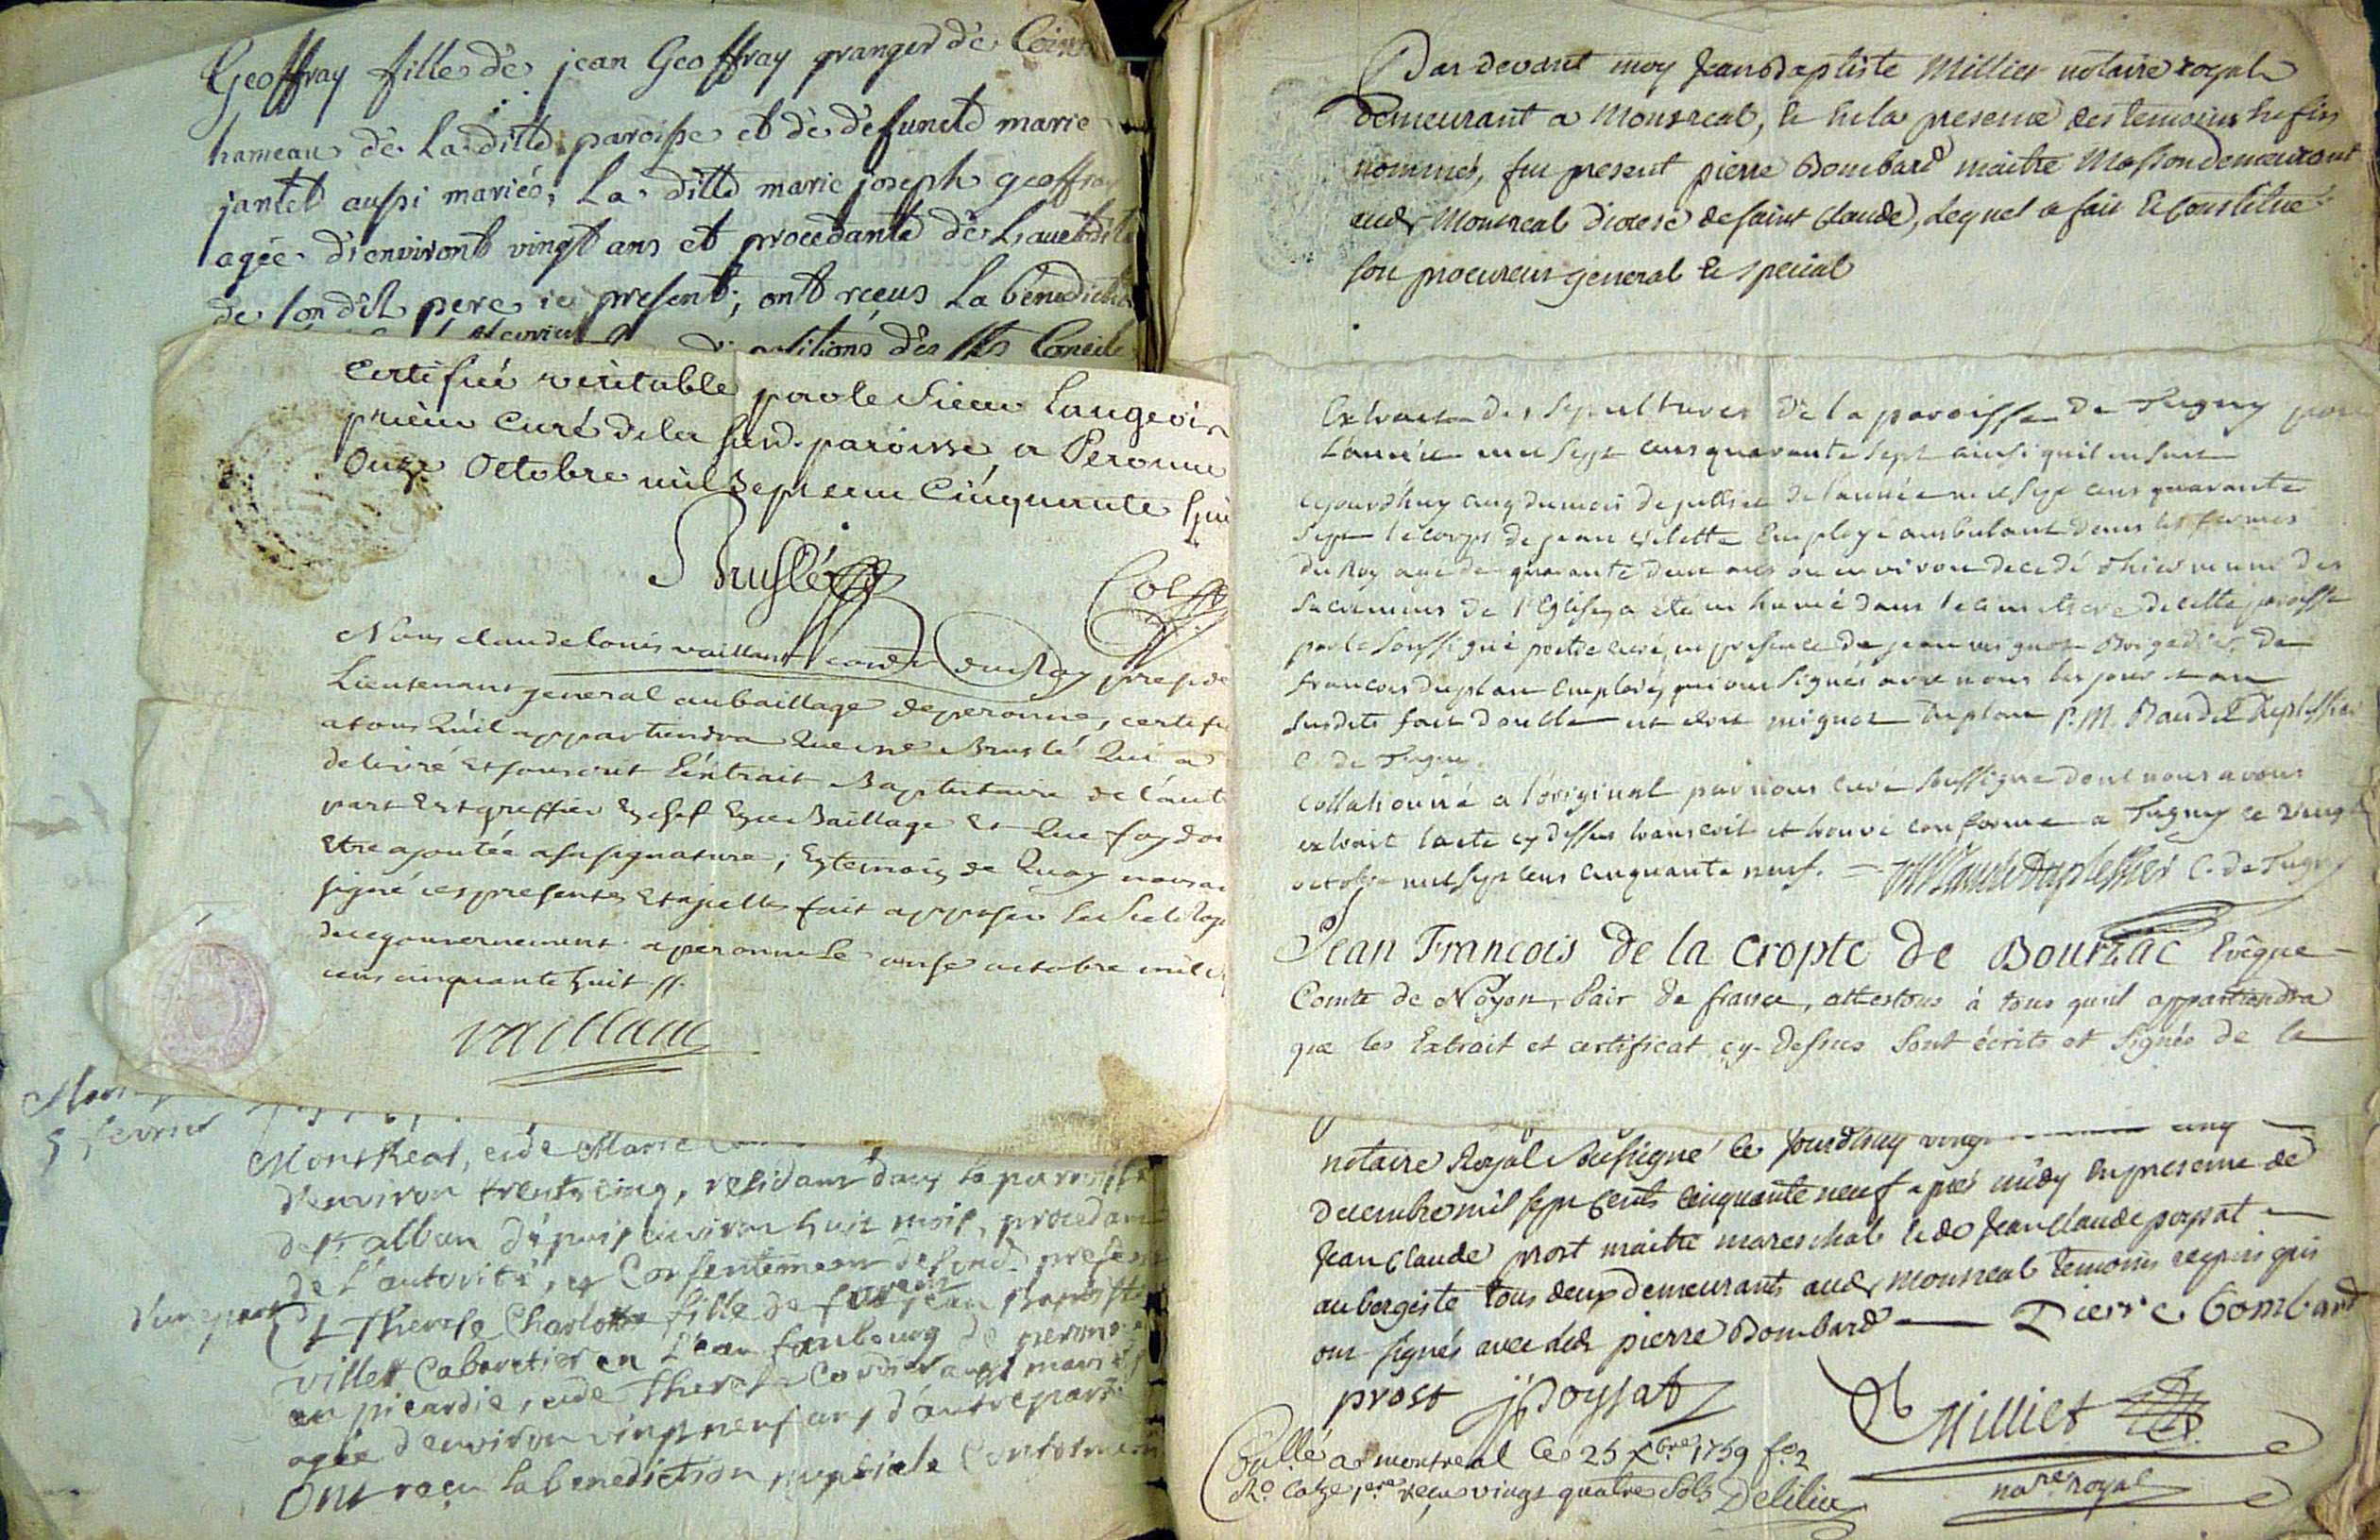 Geoffray fille de jean Geoffray granger de
hameau de La ditte paroisse et de defuncte marie
jantet aussi mariés, La ditte marie joseph geoffray
agée d'environt vingt ans et procedante de L'autorité
de son dit pere ici present; ont reçus La bénédiction
des Sts Concile
Certifiée véritable par le Sieur Langevin
prieur Curé de la susd. paroisse a Peronne
Onze Octobre mil Sept cens Cinquante huit
Bruslé
Nous claude louis vaillant du Roy
Lieutenant general au bailliage de peronne, certifi
a tous Qu'il appartiendra Que me Bruslé Qui a
délivré et souscrit L'extrait Baptistaire de l'autre
part Est greffier En chef En ce Bailliage Et Que foy doit
Etre ajoutée a sa signature; En temoin de Quoy nous avons
signé ces presentes Et a jcelles fait apposer le Scel Roya
de ce gouvernement a peronne le onse octobre mil
cens cinquante huit //.
vaillant
5 fevrier
Montreal, et de Marie
d'environ trente cinq, residant dans la paroisse
de st alban depuis environ huit mois, procedant
de l'autorité, et Consentement
d'une part Et Therese Charlotte fille de jean Baptiste
villet Cabaretier en L'eau faubourg de peronne
en picardie, et de Therese Cordier aussi mariés
agée d'environ vingt neuf ans d'autre part.
Ont reçu la benediction nuptiale Conformem
Par devant moy Jean Baptiste Milliet notaire royal
demeurant a Monreal, & en la presence des temoins en fin
nommés, fut present pierre Bombard maitre Masson demeurant
aud. Montreal diocese de saint Claude, Lequel a fait & Constitué
son procureur general & special
Extrait des sepultures de la paroisse de Tugny pour
L'année mil sept cens quarante sept ainsi quil en suit
cejourd'huy cinq du mois de juillet de l'année mil sept cens quarante
sept le corps de jean Vilette Employé ambulant dans les fermes
du Roy agé de quarante deux ans ou environ decedé muni des
sacremens de l'Eglise, a été inhumé dans le cimetiere de cette paroisse
par le soussigné pretre curé, en presence de jean mignot Brigadier de
francois duplan employés, qui ont signés avec nous les jour et an
susdits fait double et ont mignot Duplan P.M. Baudel Duplessier
C. de Tugny.
Collationné a l'original par nous curé soussigné dont nous avons
extrait l'acte cy dessus transcrit et trouvé conforme a Tugny ce vingt
octobre mil sept cens cinquante neuf. C. de Tugny
Jean Francois de la Cropte de Bourzac Evêque
Comte de Noyon, Pair de france, attestons à tous qu'il appartiendra
que les Extrait et certificat cy-dessus sont écrits et signés de la
notaire Royal Soussigné ce jourdhuy vingt cinq
decembre mil sept cents cinquante neuf apres midy en presence de
Jean Claude prost maitre mareschal & de Jean Claude poysat
aubergiste tous deux demeurants aud. monreal temoins requis qui
ont signés avec led. pierre Bombard Pierre bombard
prost jjpoysat Milliet
nore royal
Cullé a montreal le 25 Xbre 1759 fo. 2
Ro. Catze 1ere reçu vingt quatre sols Delilia